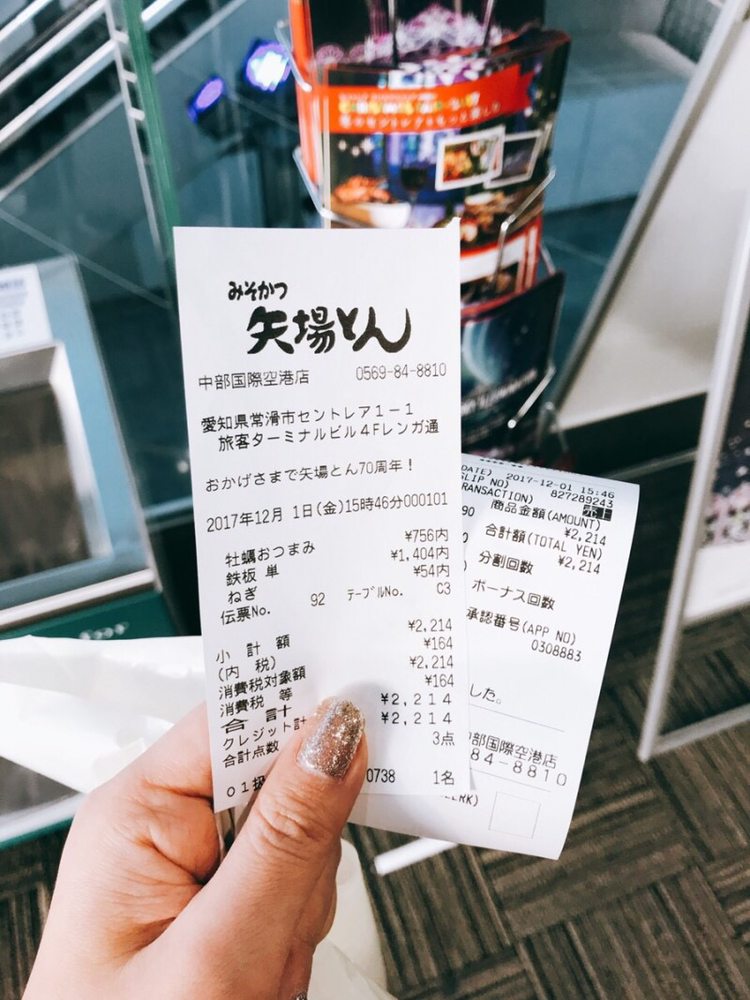 みそかつ
矢場とん
中部国際空港店 0569-84-8810
愛知県常滑市セントレア1-1
旅客ターミナルビル4Fレンガ通
おかげさまで矢場とん70周年!
2017年12月 1日(金)15時46分000101
牡蠣おつまみ ¥756内
鉄板 単 ¥1,404内
ねぎ ¥54内
伝票No. 92 テーブルNo. C3
小 計 額 ¥2,214
(内 税) ¥164
消費税対象額 ¥2,214
消費税 等 ¥164
合 計 ¥2,214
クレジット計 ¥2,214
合計点数 3点
01扱 0738 1名
DATE) 2017-12-01 15:46
SLIP NO) 827289243
TRANSACTION) 売上
90 商品金額(AMOUNT)
¥2,214
合計額(TOTAL YEN)
¥2,214
分割回数
ボーナス回数
承認番号(APP NO)
0308883
した。
部国際空港店
84-8810
ERK)